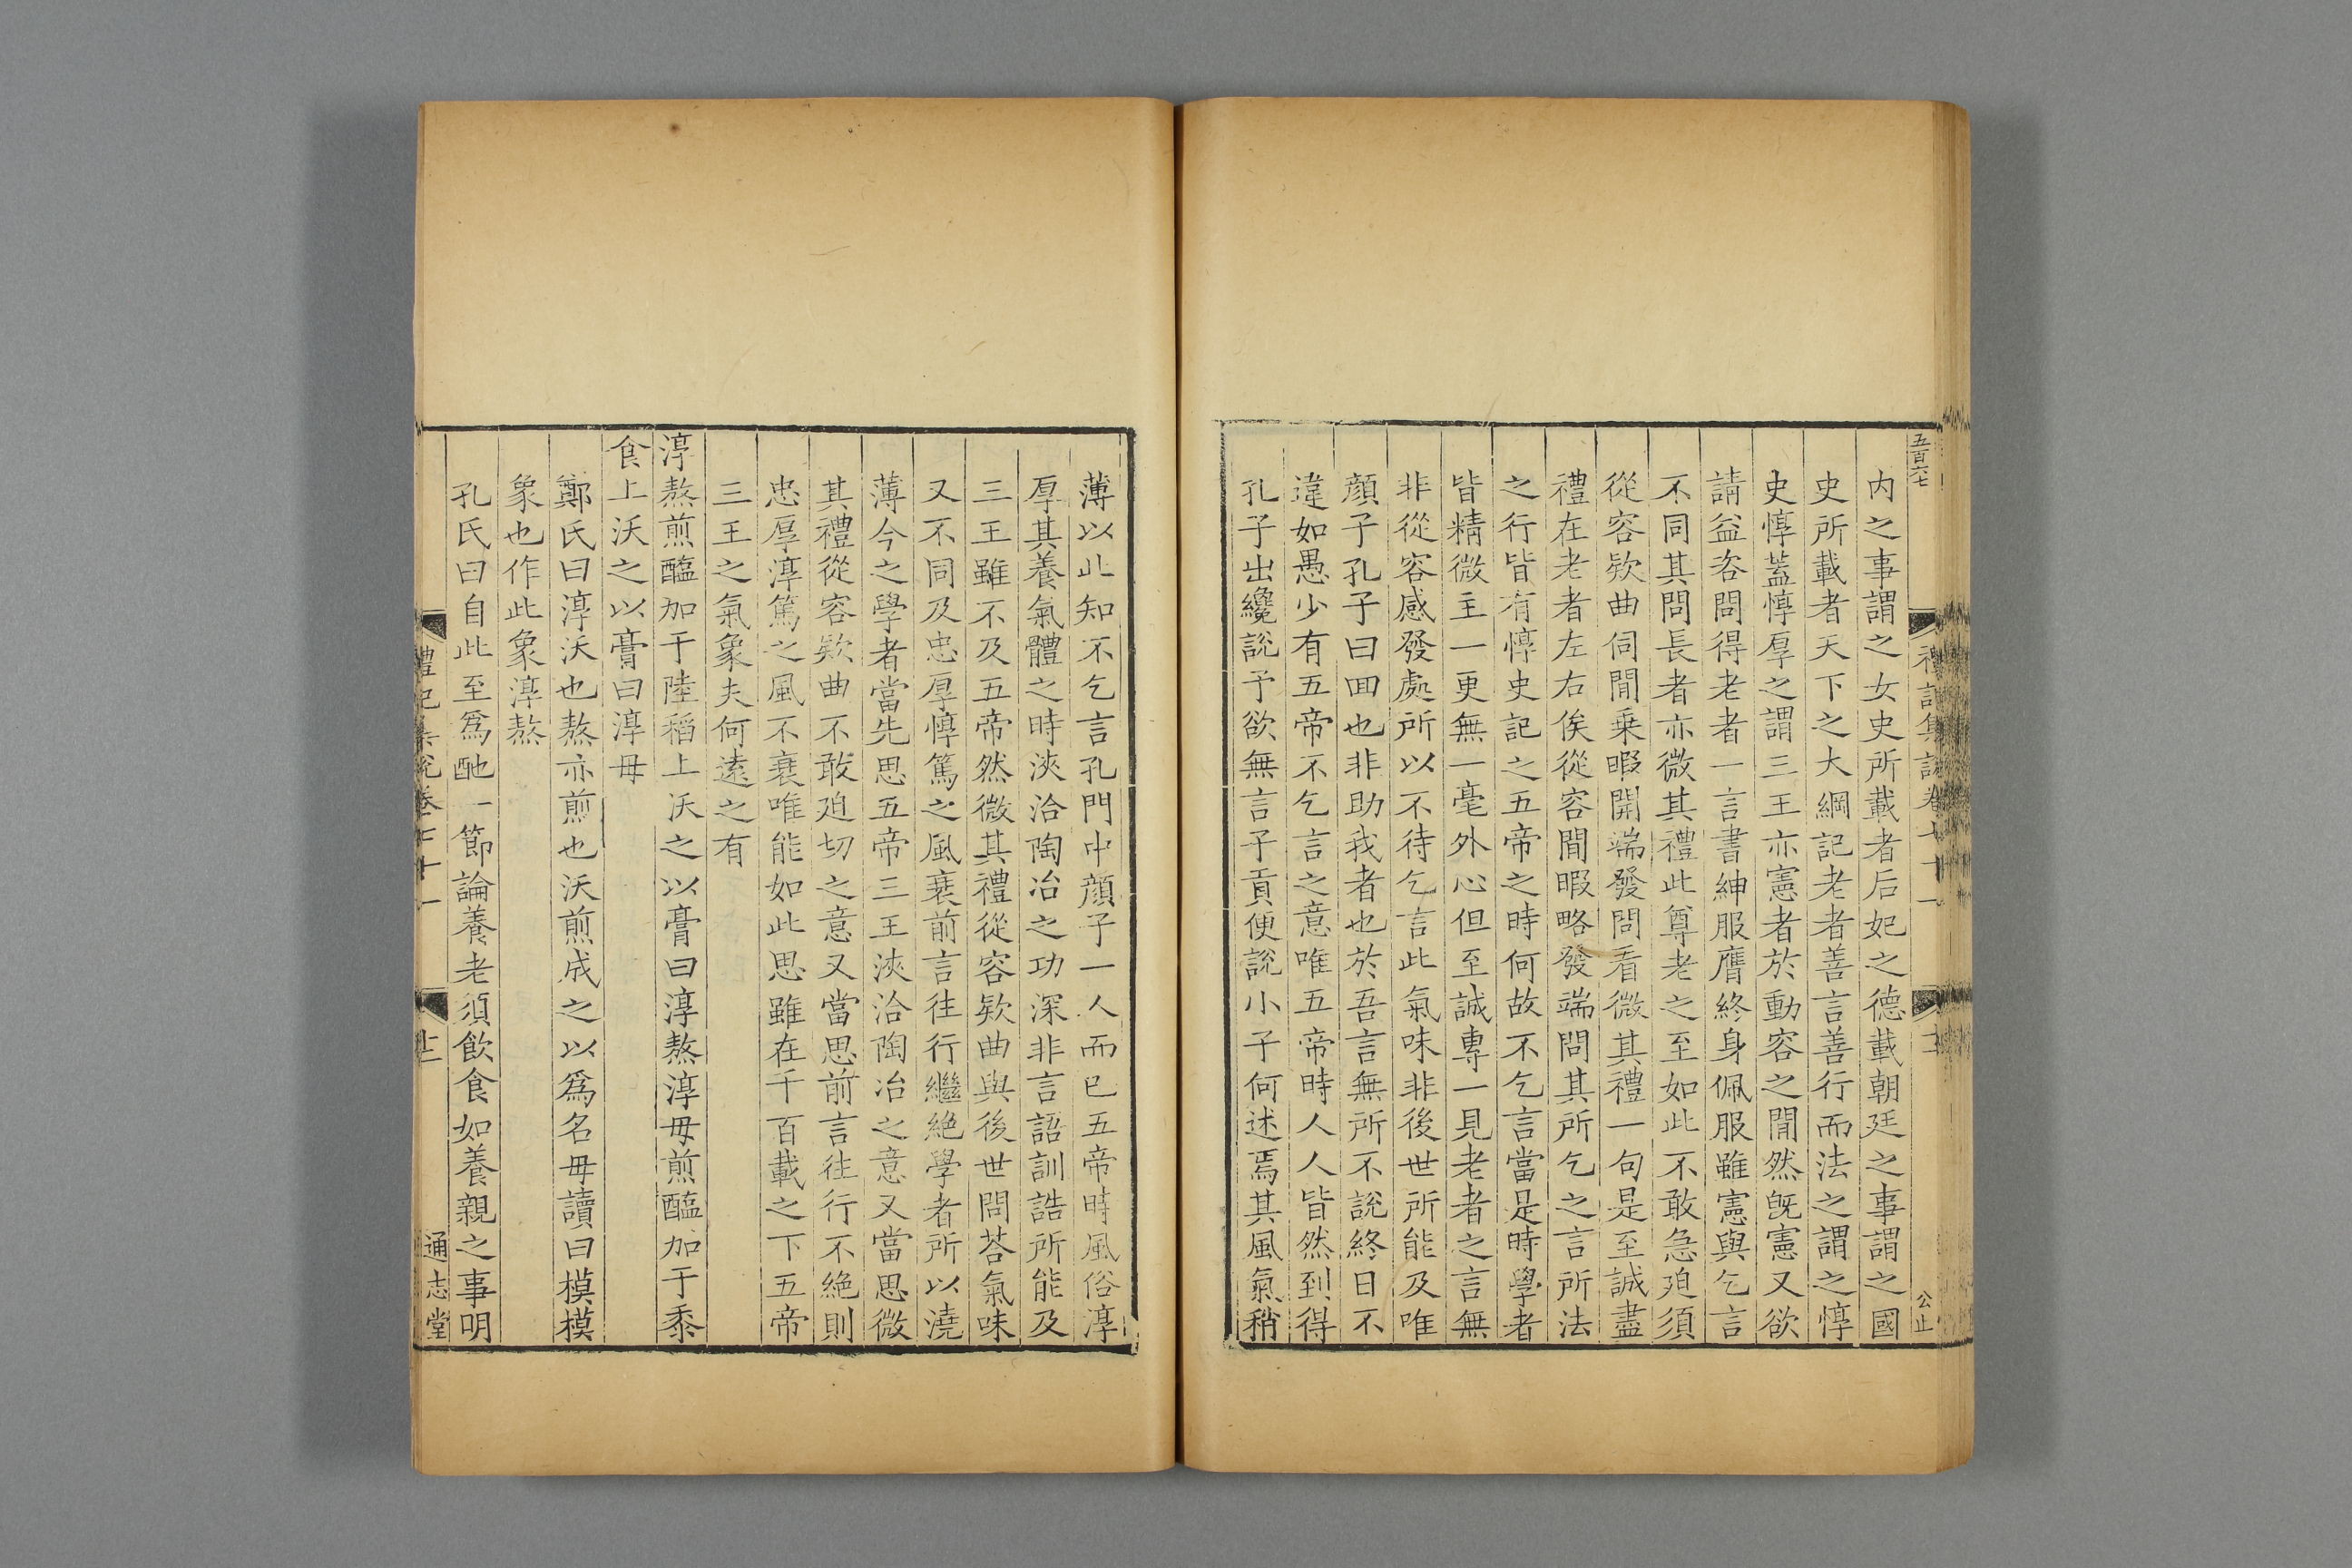 五百六七
禮記集說卷七十一
公止
内之事謂之女史所載者后妃之德載朝廷之事謂之國
史所載者天下之大綱記老者善言善行而法之謂之惇
史惇葢惇厚之謂三王亦憲者於動容之閒然旣憲又欲
請益咨問得老者一言書紳服膺終身佩服雖憲與乞言
不同其問長者亦微其禮此尊老之至如此不敢急廹須
從容欵曲伺閒乗暇開端發問看微其禮一句是至誠盡
禮在老者左右俟從容閒暇略發端問其所乞之言所法
之行皆有惇史記之五帝之時何故不乞言當是時學者
皆精微主一更無一毫外心但至誠專一見老者之言無
非從容感發處所以不待乞言此氣味非後世所能及唯
顔子孔子曰囬也非助我者也於吾言無所不說終日不
違如愚少有五帝不乞言之意唯五帝時人人皆然到得
孔子出纔說予欲無言子貢便說小子何述焉其風氣稍
薄以此知不乞言孔門中顔子一人而已五帝時風俗淳
厚其養氣體之時浹洽陶冶之功深非言語訓誥所能及
三王雖不及五帝然微其禮從容欵曲與後世問荅氣味
又不同及忠厚惇篤之風衰前言往行繼絶學者所以澆
薄今之學者當先思五帝三王浹洽陶冶之意又當思微
其禮從容欵曲不敢廹切之意又當思前言往行不絶則
忠厚淳篤之風不衰唯能如此思雖在千百載之下五帝
三王之氣象夫何遠之有
淳熬煎醢加于陸稻上沃之以膏曰淳熬淳毋煎醢加于黍
食上沃之以膏曰淳毋
鄭氏曰淳沃也熬亦煎也沃煎成之以爲名毋讀曰模模
象也作此象淳熬
孔氏曰自此至爲酏一節論養老須飲食如養親之事明
禮記集說卷七十一
通志堂